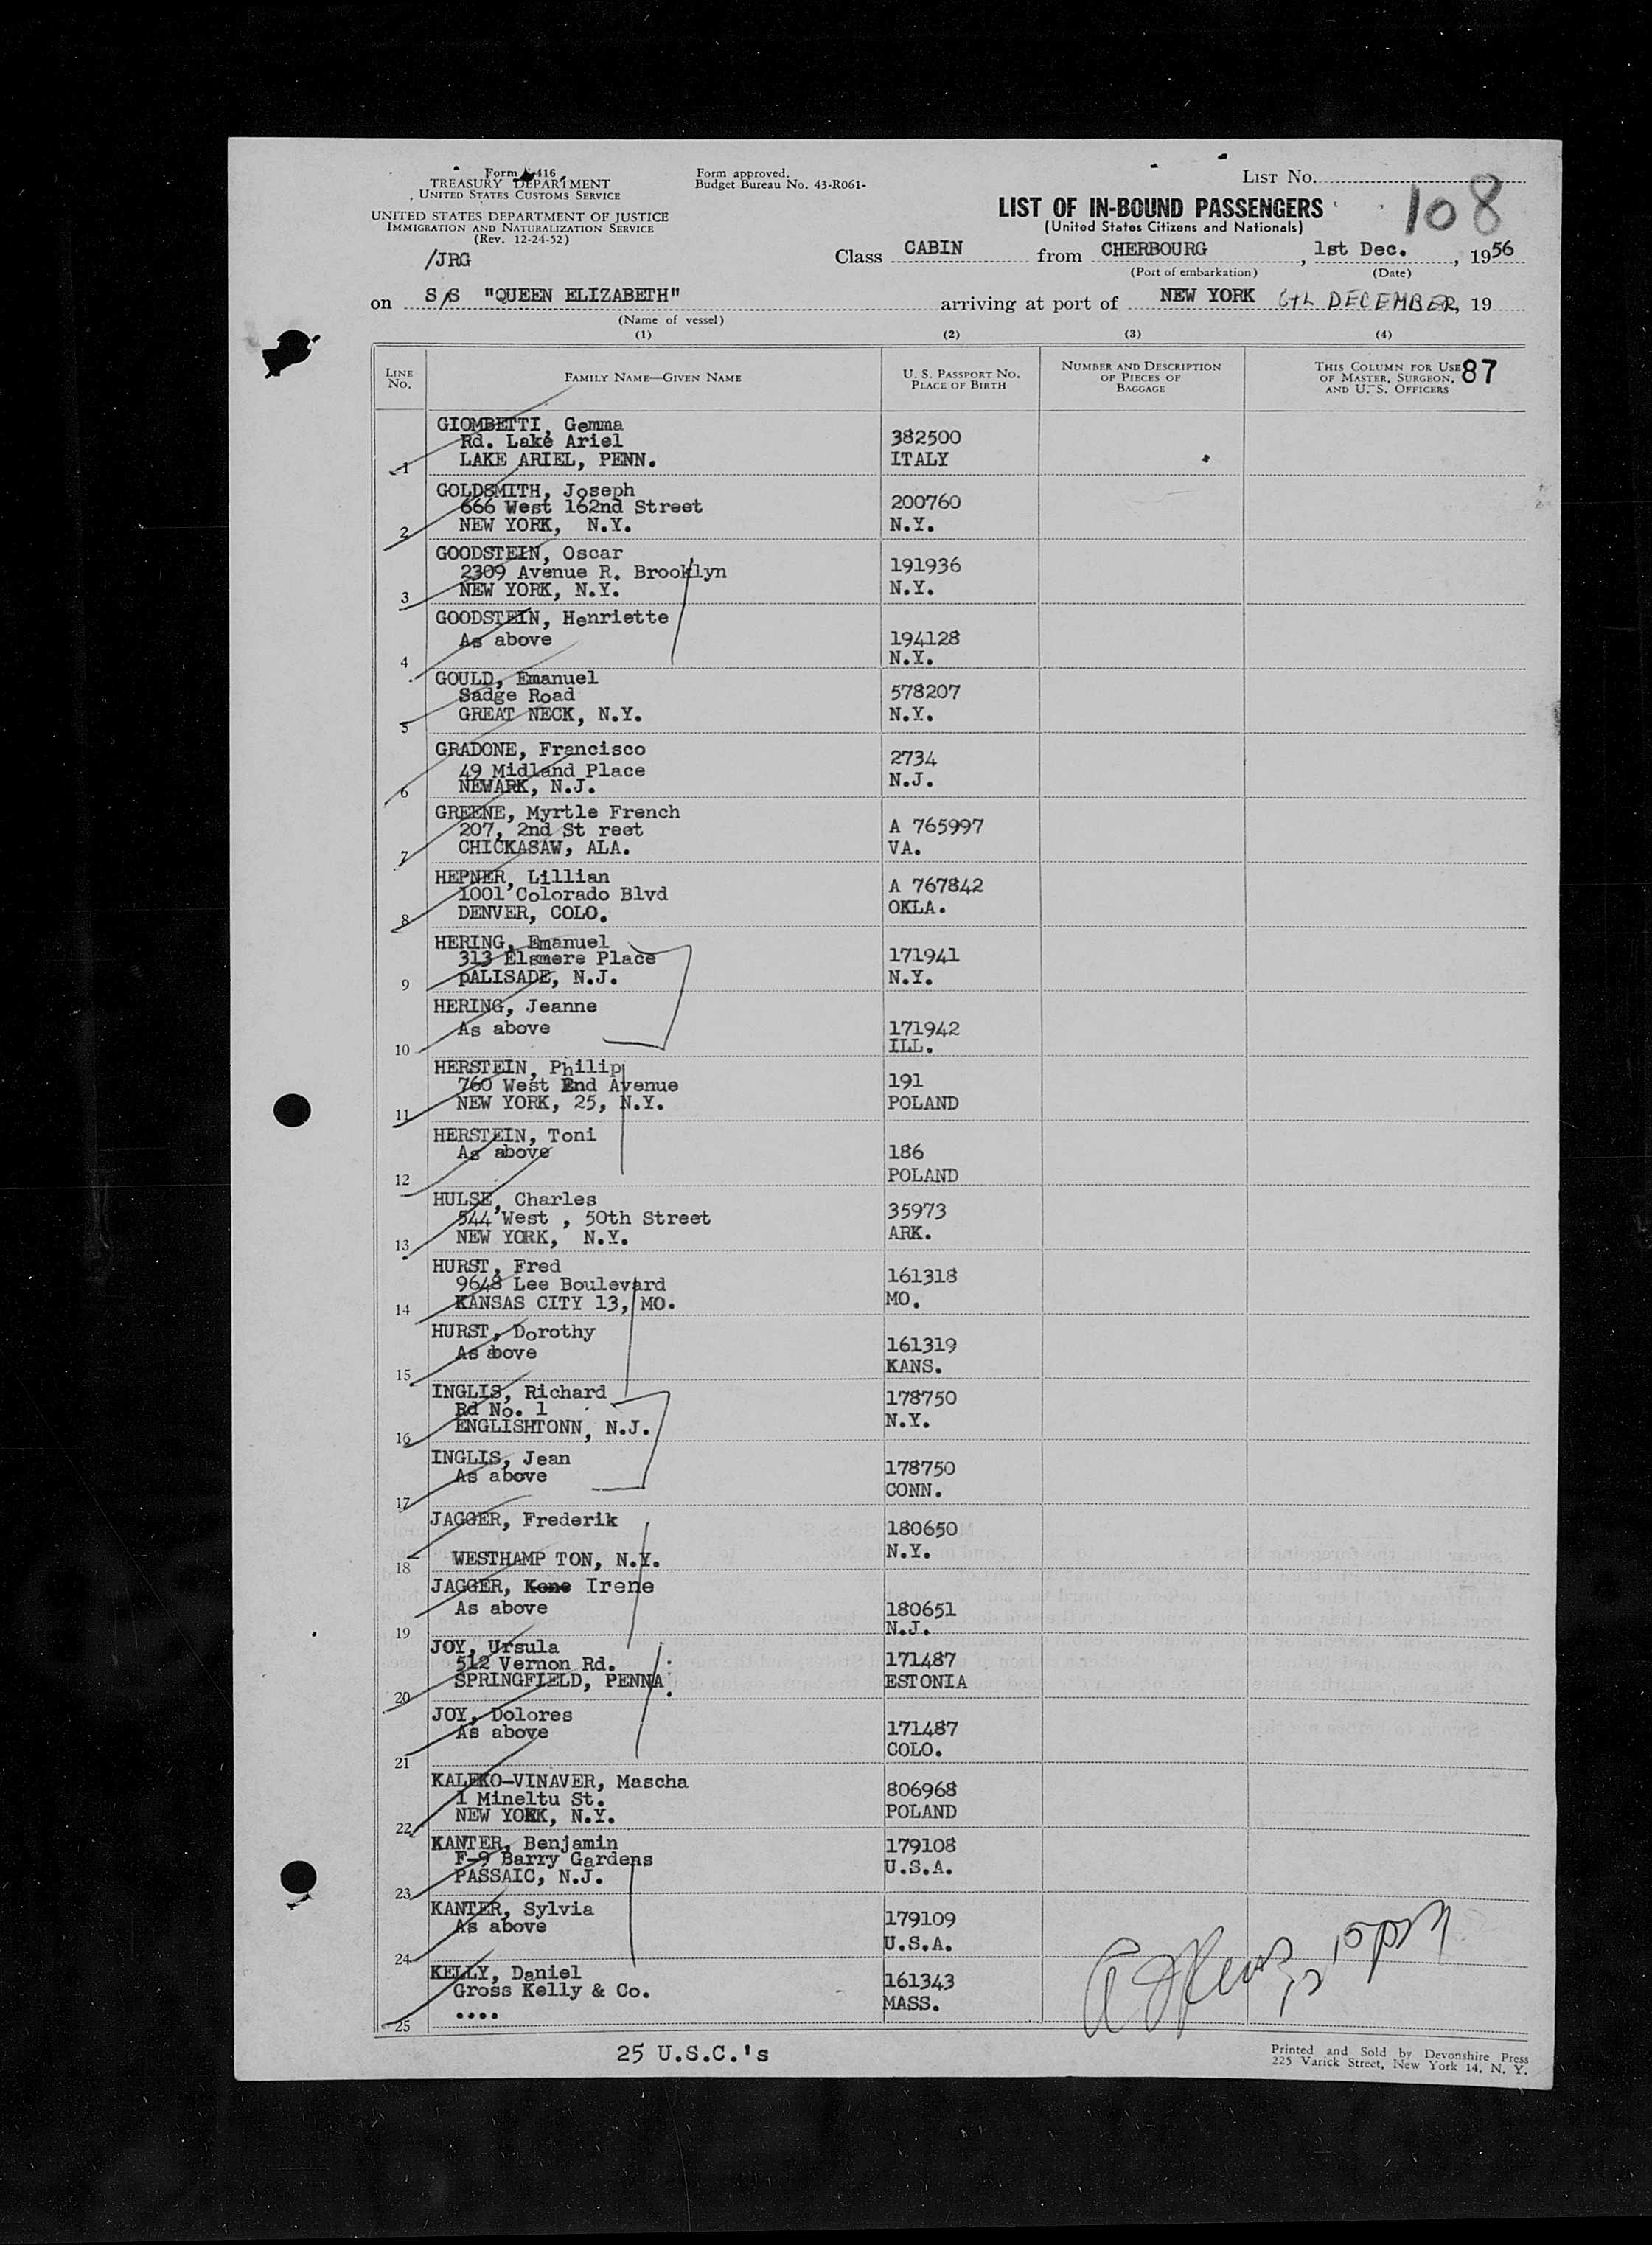 Form 416
TREASURY DEPARTMENT
UNITED STATES CUSTOMS SERVICE
UNITED STATES DEPARTMENT OF JUSTICE
IMMIGRATION AND NATURALIZATION SERVICE
(Rev. 12-24-52)
/JRG
Form approved.
Budget Bureau No. 43-R061-
LIST NO.
108
LIST OF IN-BOUND PASSENGERS
(United States Citizens and Nationals)
Class CABIN from CHERBOURG, 1st Dec., 1956
(Port of embarkation) (Date)
on S/S "QUEEN ELIZABETH" arriving at port of NEW YORK 6th DECEMBER, 19
(Name of vessel)
(1) (2) (3) (4)
LINE NO. FAMILY NAME—GIVEN NAME U. S. PASSPORT NO. PLACE OF BIRTH NUMBER AND DESCRIPTION OF PIECES OF BAGGAGE THIS COLUMN FOR USE OF MASTER, SURGEON, AND U. S. OFFICERS 87
GIOMBETTI, Gemma
Rd. Lake Ariel 382500
1 LAKE ARIEL, PENN. ITALY
GOLDSMITH, Joseph
666 West 162nd Street 200760
2 NEW YORK, N.Y. N.Y.
GOODSTEIN, Oscar
2309 Avenue R. Brooklyn 191936
3 NEW YORK, N.Y. N.Y.
GOODSTEIN, Henriette
As above 194128
4 N.Y.
GOULD, Emanuel
Sadge Road 578207
5 GREAT NECK, N.Y. N.Y.
GRADONE, Francisco 2734
49 Midland Place N.J.
6 NEWARK, N.J.
GREENE, Myrtle French
207, 2nd St reet A 765997
7 CHICKASAW, ALA. VA.
HEPNER, Lillian A 767842
1001 Colorado Blvd OKLA.
8 DENVER, COLO.
HERING, Emanuel
313 Elsmere Place 171941
9 pALISADE, N.J. N.Y.
HERING, Jeanne
As above 171942
10 ILL.
HERSTEIN, Philip
760 West End Avenue 191
11 NEW YORK, 25, N.Y. POLAND
HERSTEIN, Toni
As above 186
12 POLAND
HULSE, Charles
544 West , 50th Street 35973
13 NEW YORK, N.Y. ARK.
HURST, Fred
9648 Lee Boulevard 161318
14 KANSAS CITY 13, MO. MO.
HURST, Dorothy
As above 161319
15 KANS.
INGLIS, Richard 178750
Rd No. 1 N.Y.
16 ENGLISHTONN, N.J.
INGLIS, Jean
As above 178750
17 CONN.
JAGGER, Frederik 180650
N.Y.
18 WESTHAMP TON, N.Y.
JAGGER, Kone Irene
As above 180651
19 N.J.
JOY, Ursula
512 Vernon Rd. 171487
20 SPRINGFIELD, PENNA. ESTONIA
JOY, Dolores
As above 171487
21 COLO.
KALEKO-VINAVER, Mascha
1 Mineltu St. 806968
22 NEW YORK, N.Y. POLAND
KANTER, Benjamin 179108
F-9 Barry Gardens U.S.A.
23 PASSAIC, N.J.
KANTER, Sylvia
As above 179109
24 U.S.A.
KELLY, Daniel
Gross Kelly & Co. 161343
25 .... MASS.
25 U.S.C.'s
Printed and Sold by Devonshire Press
225 Varick Street, New York 14, N. Y.